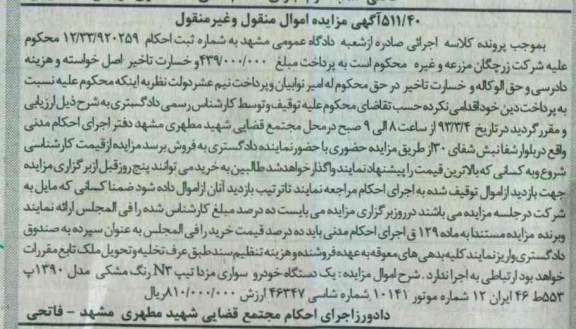 ۵۱۱/۴۰آگهی مزایده اموال منقول وغیرمنقول
بموجب پرونده کلاسه اجرائی صادره ازشعبه دادگاه عمومی مشهد به شماره ثبت احکام ۱۲/۳۳/۹۲۰۲۵۹ محکوم
علیه شرکت زرچگان مزرعه و غیره محکوم است به پرداخت مبلغ ۴۳۹/۰۰۰/۰۰۰ و خسارت تاخیر اصل خواسته و هزینه
دادرسی و حق الوکاله و خسارت تاخیر در حق محکوم له امیر نوابیان وپرداخت نیم عشردولت نظربه اینکه محکوم علیه نسبت
به پرداخت دین خوداقدامی نکرده حسب تقاضای محکوم علیه توقیف وتوسط کارشناس رسمی دادگستری به شرح ذیل ارزیابی
و مقرر گردید در تاریخ ۹۳/۳/۴ از ساعت ۸ الی ۹ صبح درمحل مجتمع قضایی شهید مطهری مشهد دفتر اجرای احکام مدنی
واقع دربلوارشفانبش شفای ۳۰از طریق مزایده حضوری با حضورنماینده دادگستری به فروش برسد مزایده از قیمت کارشناسی
شروع وبه کسانی که بالاترین قیمت را پیشنهاد نمایند واگذارخواهدشدطالبین به خریدمی توانند پنج روزقبل ازبرگزاری مزایده
جهت بازدید ازاموال توقیف شده به اجرای احکام مراجعه نمایند تاترتیب بازدید آنان ازاموال داده شود ضمنا کسانی که مایل به
شرکت درجلسه مزایده می باشند درروزبرگزاری مزایده می بایست ده درصد مبلغ کارشناس شده را فی المجلس ارائه نمایند
وبرنده مزایده مستندا به ماده ۱۲۹ ق اجرای احکام مدنی باید ده درصد قیمت خرید را فی المجلس به عنوان سپرده به صندوق
دادگستری واریزنمایند کلیه بدهی های معوقه به عهده فروشنده وهزینه تنظیم سندطبق عرف تخلیه وتحویل ملک تابع مقررات
خواهد بودارتباطی به اجراندارد . شرح اموال مزایده : یک دستگاه خودرو سواری مزدا تیپ N۳ رنگ مشکی مدل ۱۳۹۰پ
۵۵۳ط ۴۶ ایران ۱۲ شماره موتور ۱۰۱۴۱ شماره شاسی ۴۶۳۴۷ ارزش ۸۱۰/۰۰۰/۰۰۰ریال
دادورزاجرای احکام مجتمع قضایی شهید مطهری مشهد - فاتحی